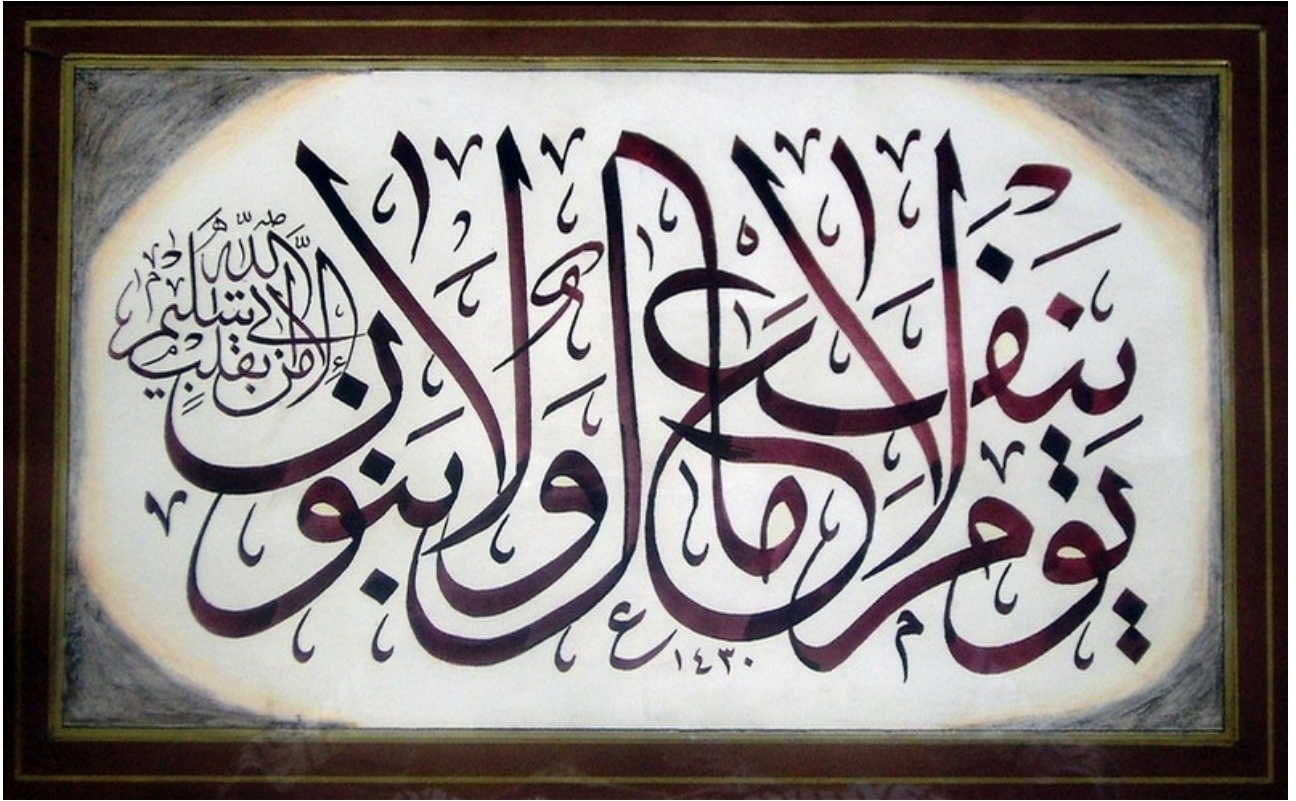 يَوْمَ لَا يَنْفَعُ مَالٌ وَلَا بَنُونَ
إِلَّا مَنْ أَتَى اللَّهَ بِقَلْبٍ سَلِيمٍ
١٤٣٠